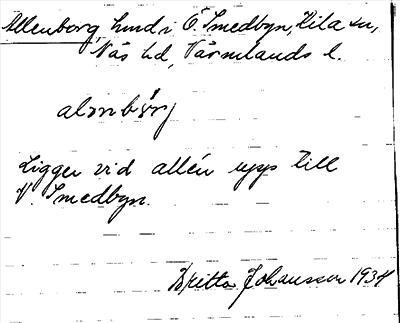 Allenborg, lund i Ö. Smedbyn, Kila sn,
Näs hd, Värmlands l.
alənbörj
Ligger vid allén upp till
V. Smedbyn.
Britta Johansson 1934